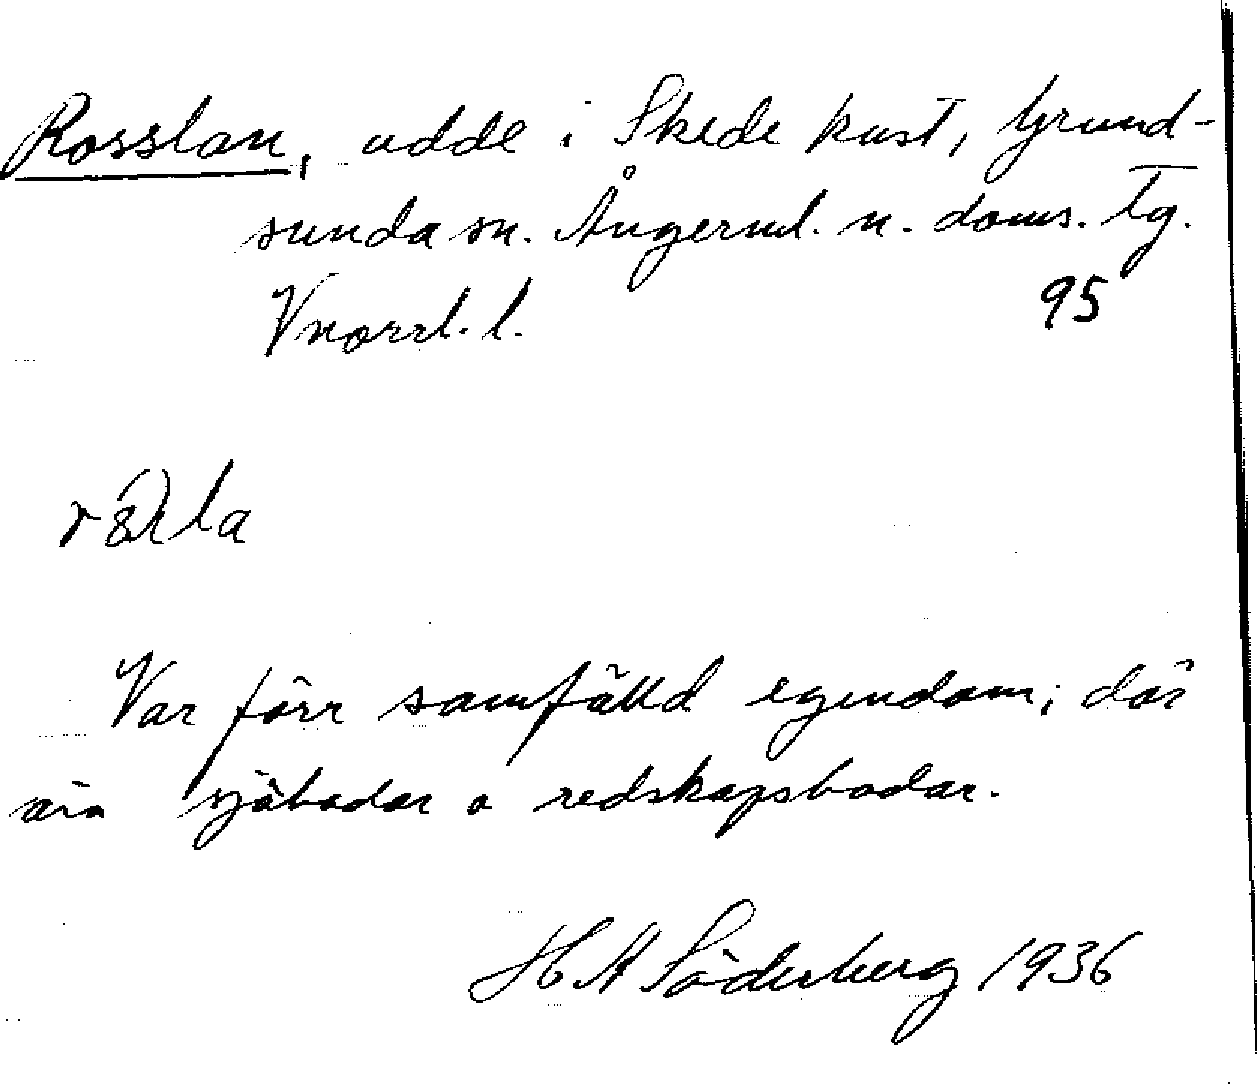 Rosslan, udde i Skede kust, Grund-
sunda sn. Ångerml. n. doms. tg.
Vnorrl. l. 95
Var förr samfälld egendom; där
sjöbodar o redskapsbodar.
H A Söderberg 1936